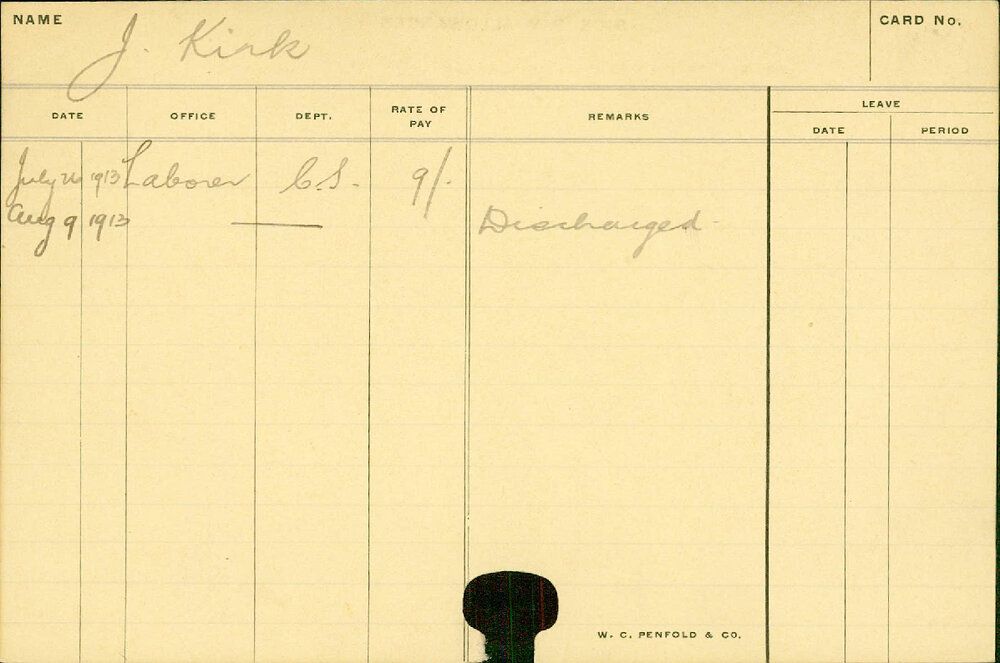 NAME J. Kirk CARD No.
DATE OFFICE DEPT. RATE OF PAY REMARKS LEAVE
DATE PERIOD
July 1913 Laborer C.S. 9/-
Aug 9 1913 —— Discharged
W. C. PENFOLD & CO.